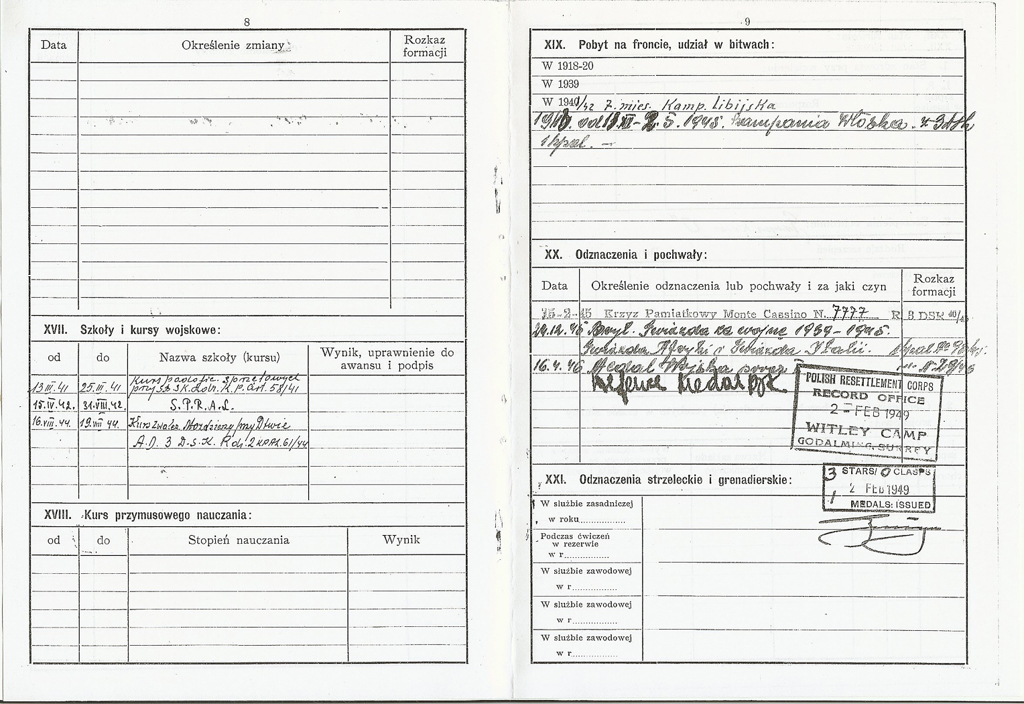 8
Data Określenie zmiany Rozkaz formacji
XVII. Szkoły i kursy wojskowe:
od do Nazwa szkoły (kursu) Wynik, uprawnienie do awansu i podpis
13 III. 41 25 III. 41 Kurs sprzętowych
przy 57/41
15. IV. 42. 31. VIII. 42. S.P.R.A.L.
16. VIII. 44. 19. VIII 44. Kurs przy D-twie
A.D. 3 D.S.K. 61/44
XVIII. Kurs przymusowego nauczania:
od do Stopień nauczania Wynik
9
XIX. Pobyt na froncie, udział w bitwach:
W 1918-20
W 1939
W 1940/42 7. mies. Kamp. Libijska
5. 1945. Kampania Włoska. z 3
XX. Odznaczenia i pochwały:
Data Określenie odznaczenia lub pochwały i za jaki czyn Rozkaz formacji
15-2-45 Krzyz Pamiatkowy Monte Cassino N. 7777 R 8 DSK
Bryt. Gwiazda za wojnę 1939 - 1945.
Gwiazda Afryki i Gwiazda Italii.
16. 4. 46 Medal Wojska
POLISH RESETTLEMENT CORPS
RECORD OFFICE
2 - FEB 1949
WITLEY CAMP
GODALMING, SURREY
XXI. Odznaczenia strzeleckie i grenadierskie:
3 STARS/0 CLASPS
1 2 FEB 1949
MEDALS: ISSUED
W służbie zasadniczej
w roku..............
Podczas ćwiczeń
w rezerwie
w r..............
W służbie zawodowej
w r..............
W służbie zawodowej
w r..............
W służbie zawodowej
w r..............